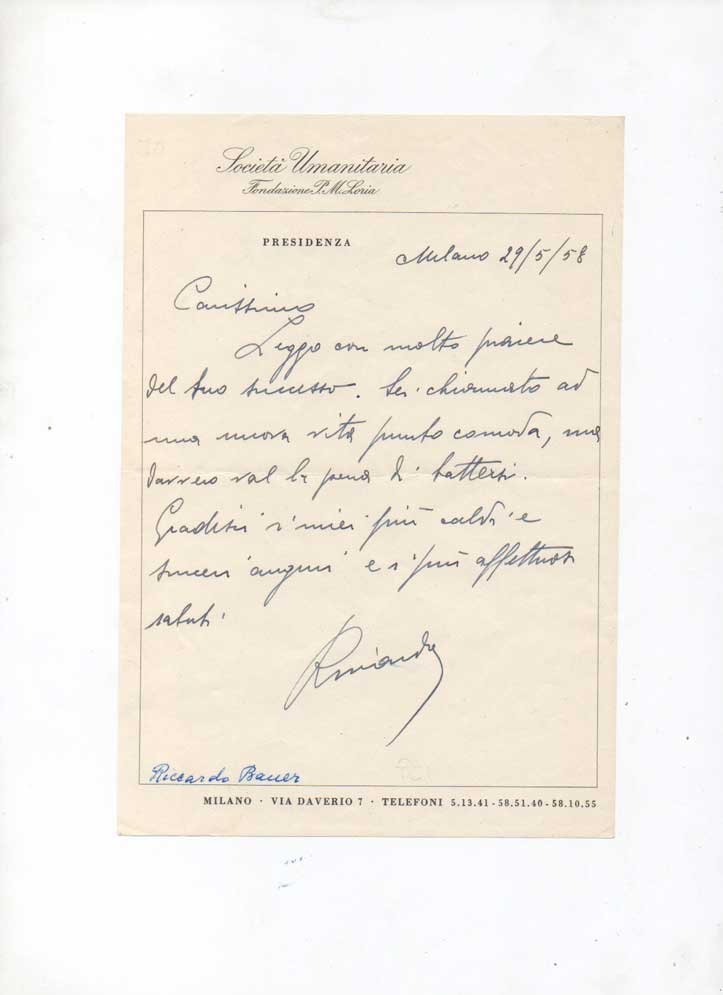 Società Umanitaria
Fondazione P. M. Loria
PRESIDENZA
Milano 29/5/58
Carissimo
Leggo con molto piacere
del tuo successo. Sei chiamato ad
una nuova vita punto comoda, ma
davvero val la pena di battersi.
Gradisci i miei più caldi e
sinceri auguri e i più affettuosi
saluti
Riccardo
Riccardo Bauer
MILANO · VIA DAVERIO 7 · TELEFONI 5.13.41 - 58.51.40 - 58.10.55